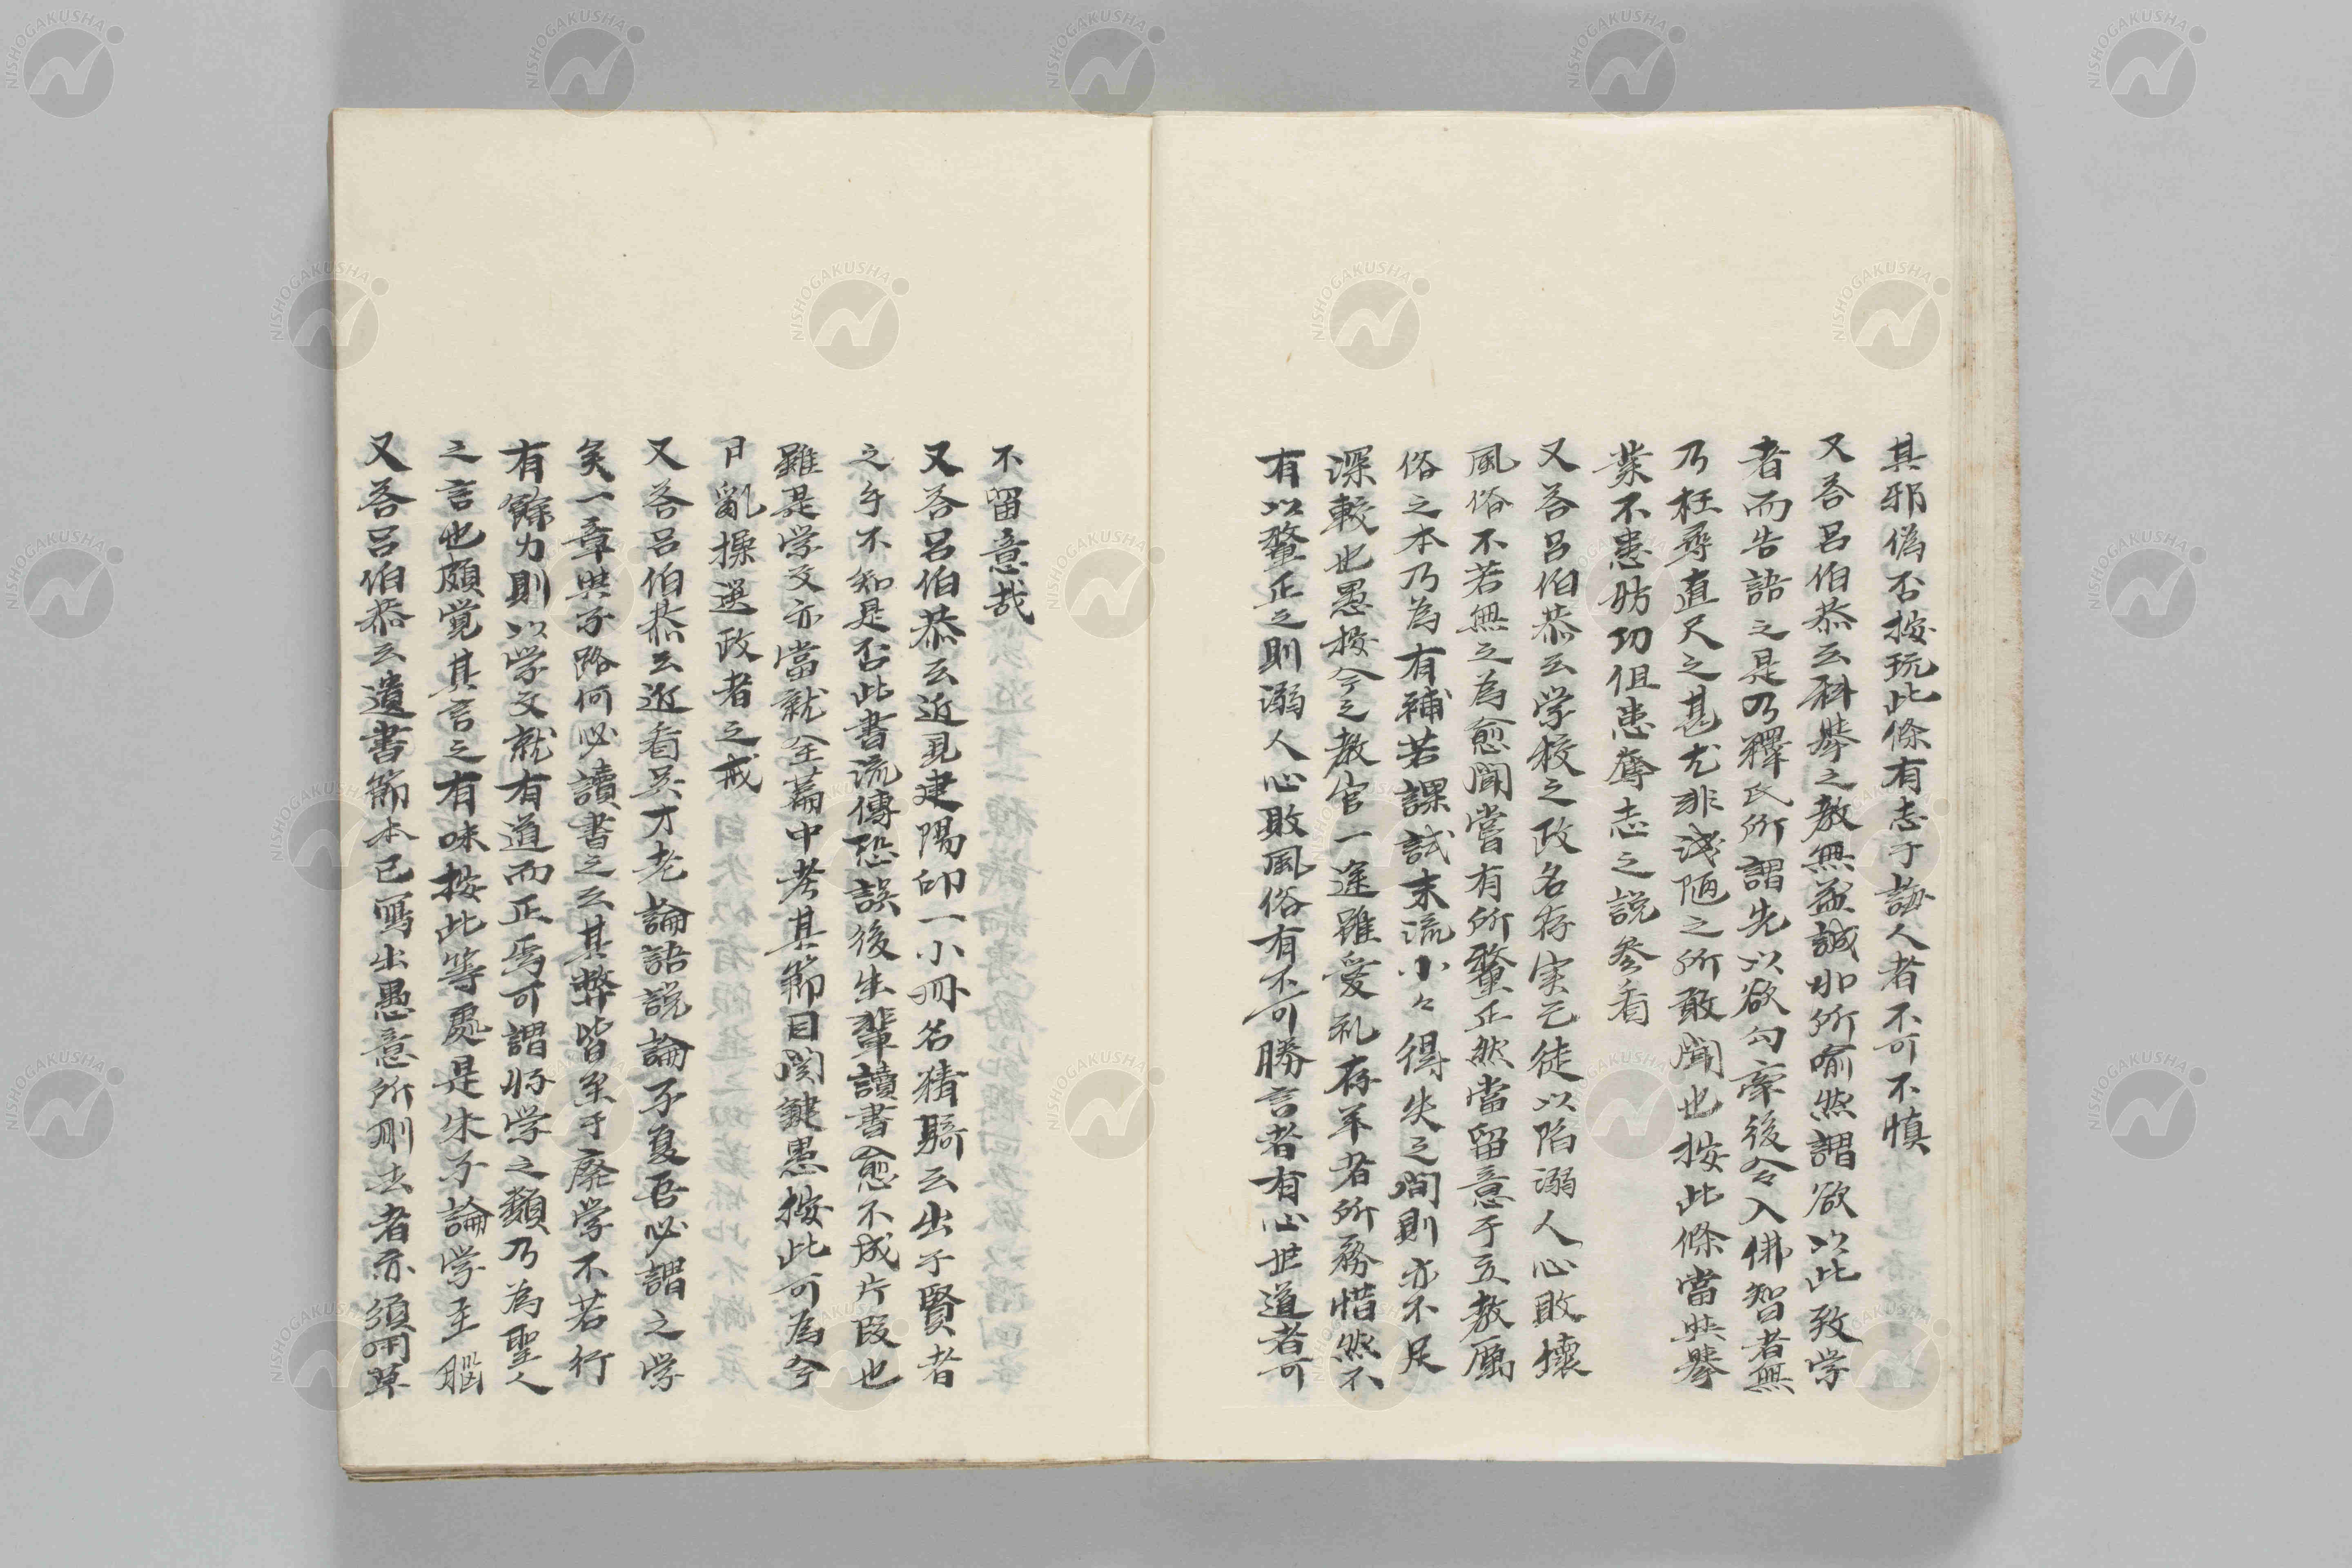 其邪偽否按玩此條有志于誨人者不可不慎
又答呂伯恭云科挙之教無益誠如所喩然謂欲以此致学
者而告語之是乃釋氏所謂先以欲勾牽後令入佛智者無
乃枉尋直尺之甚尤非淺陋之所敢聞也按此條當与挙
業不患妨功但患奪志之説参看
又答呂伯恭云学校之政名存実亡徒以陷溺人心敗壊
風俗不若無之為愈聞嘗有所釐正然當留意于立教厲
俗之本乃為有補若課試末流小々得失之間則亦不足
深較也愚按今之教官一途雖愛礼存羊者所務惜然不
有以釐正之則溺人心敗風俗有不可勝言者有心世道者可
不留意哉
又答呂伯恭云近見建陽印一小冊名精騎云出于賢者
之手不知是否此書流傳恐誤後生輩讀書愈不成片段也
雖是学文亦當就全篇中考其節目関鍵愚按此可為今
日亂操選政者之戒
又答呂伯恭云近看吳才老論語説論子夏吾必謂之学
矣一章与子路何必讀書之云其弊皆至于廃学不若行
有餘力則以学文就有道而正焉可謂好学之類乃為聖人
之言也頗覚其言之有味按此等處是朱子論学主腦
又答呂伯恭云遺書節本已寫出愚意所刪去者亦須用草
NISHOGAKUSHA